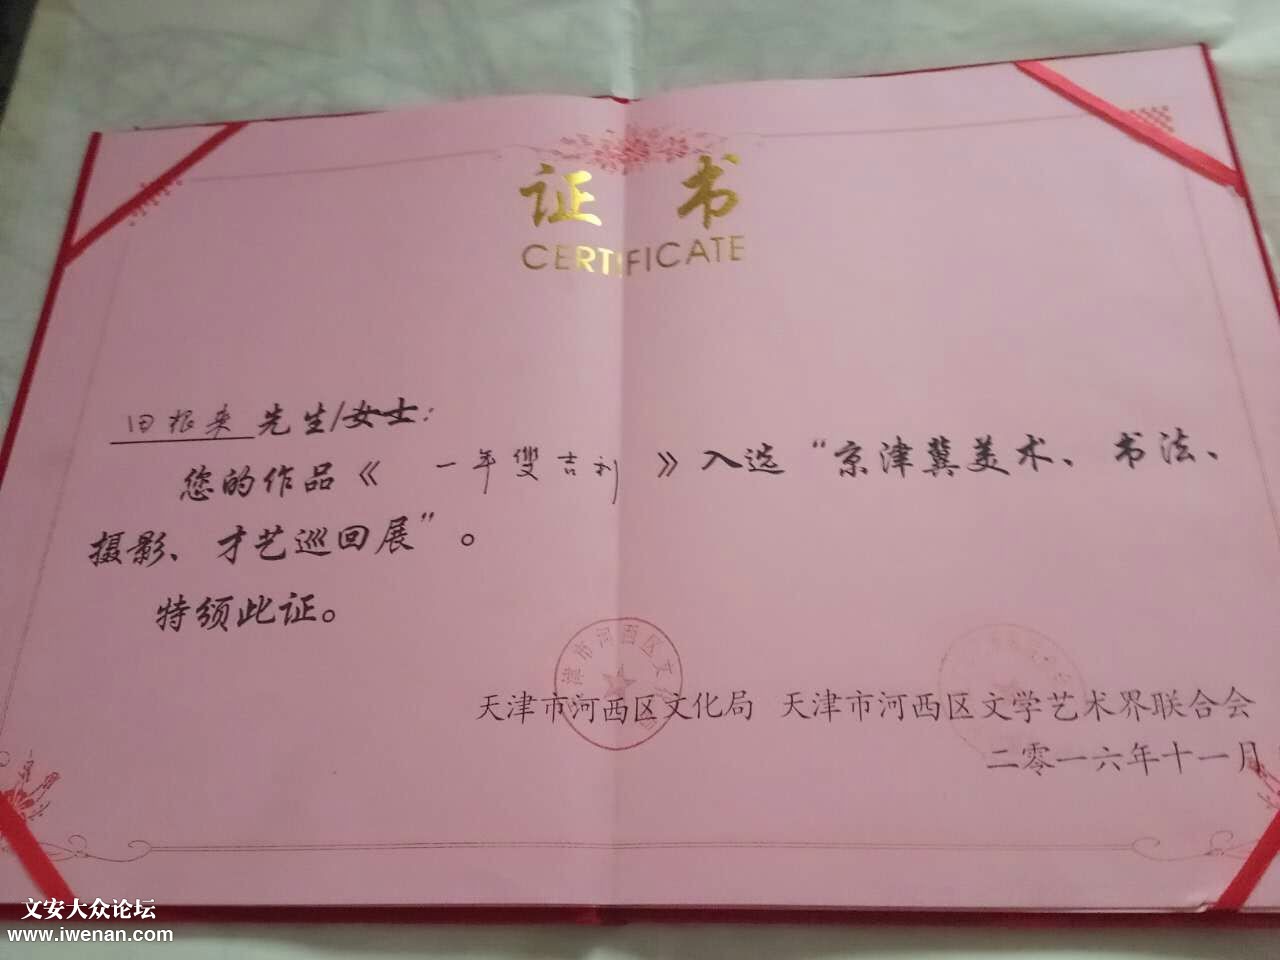 证书
CERTIFICATE
田根来 先生/女士:
您的作品《 一年雙吉利 》入选“京津冀美术、书法、
摄影、才艺巡回展”。
特颁此证。
津市河西区文
天津市河西区文化局 天津市河西区文学艺术界联合会
二零一六年十一月
文安大众论坛
www.iwenan.com